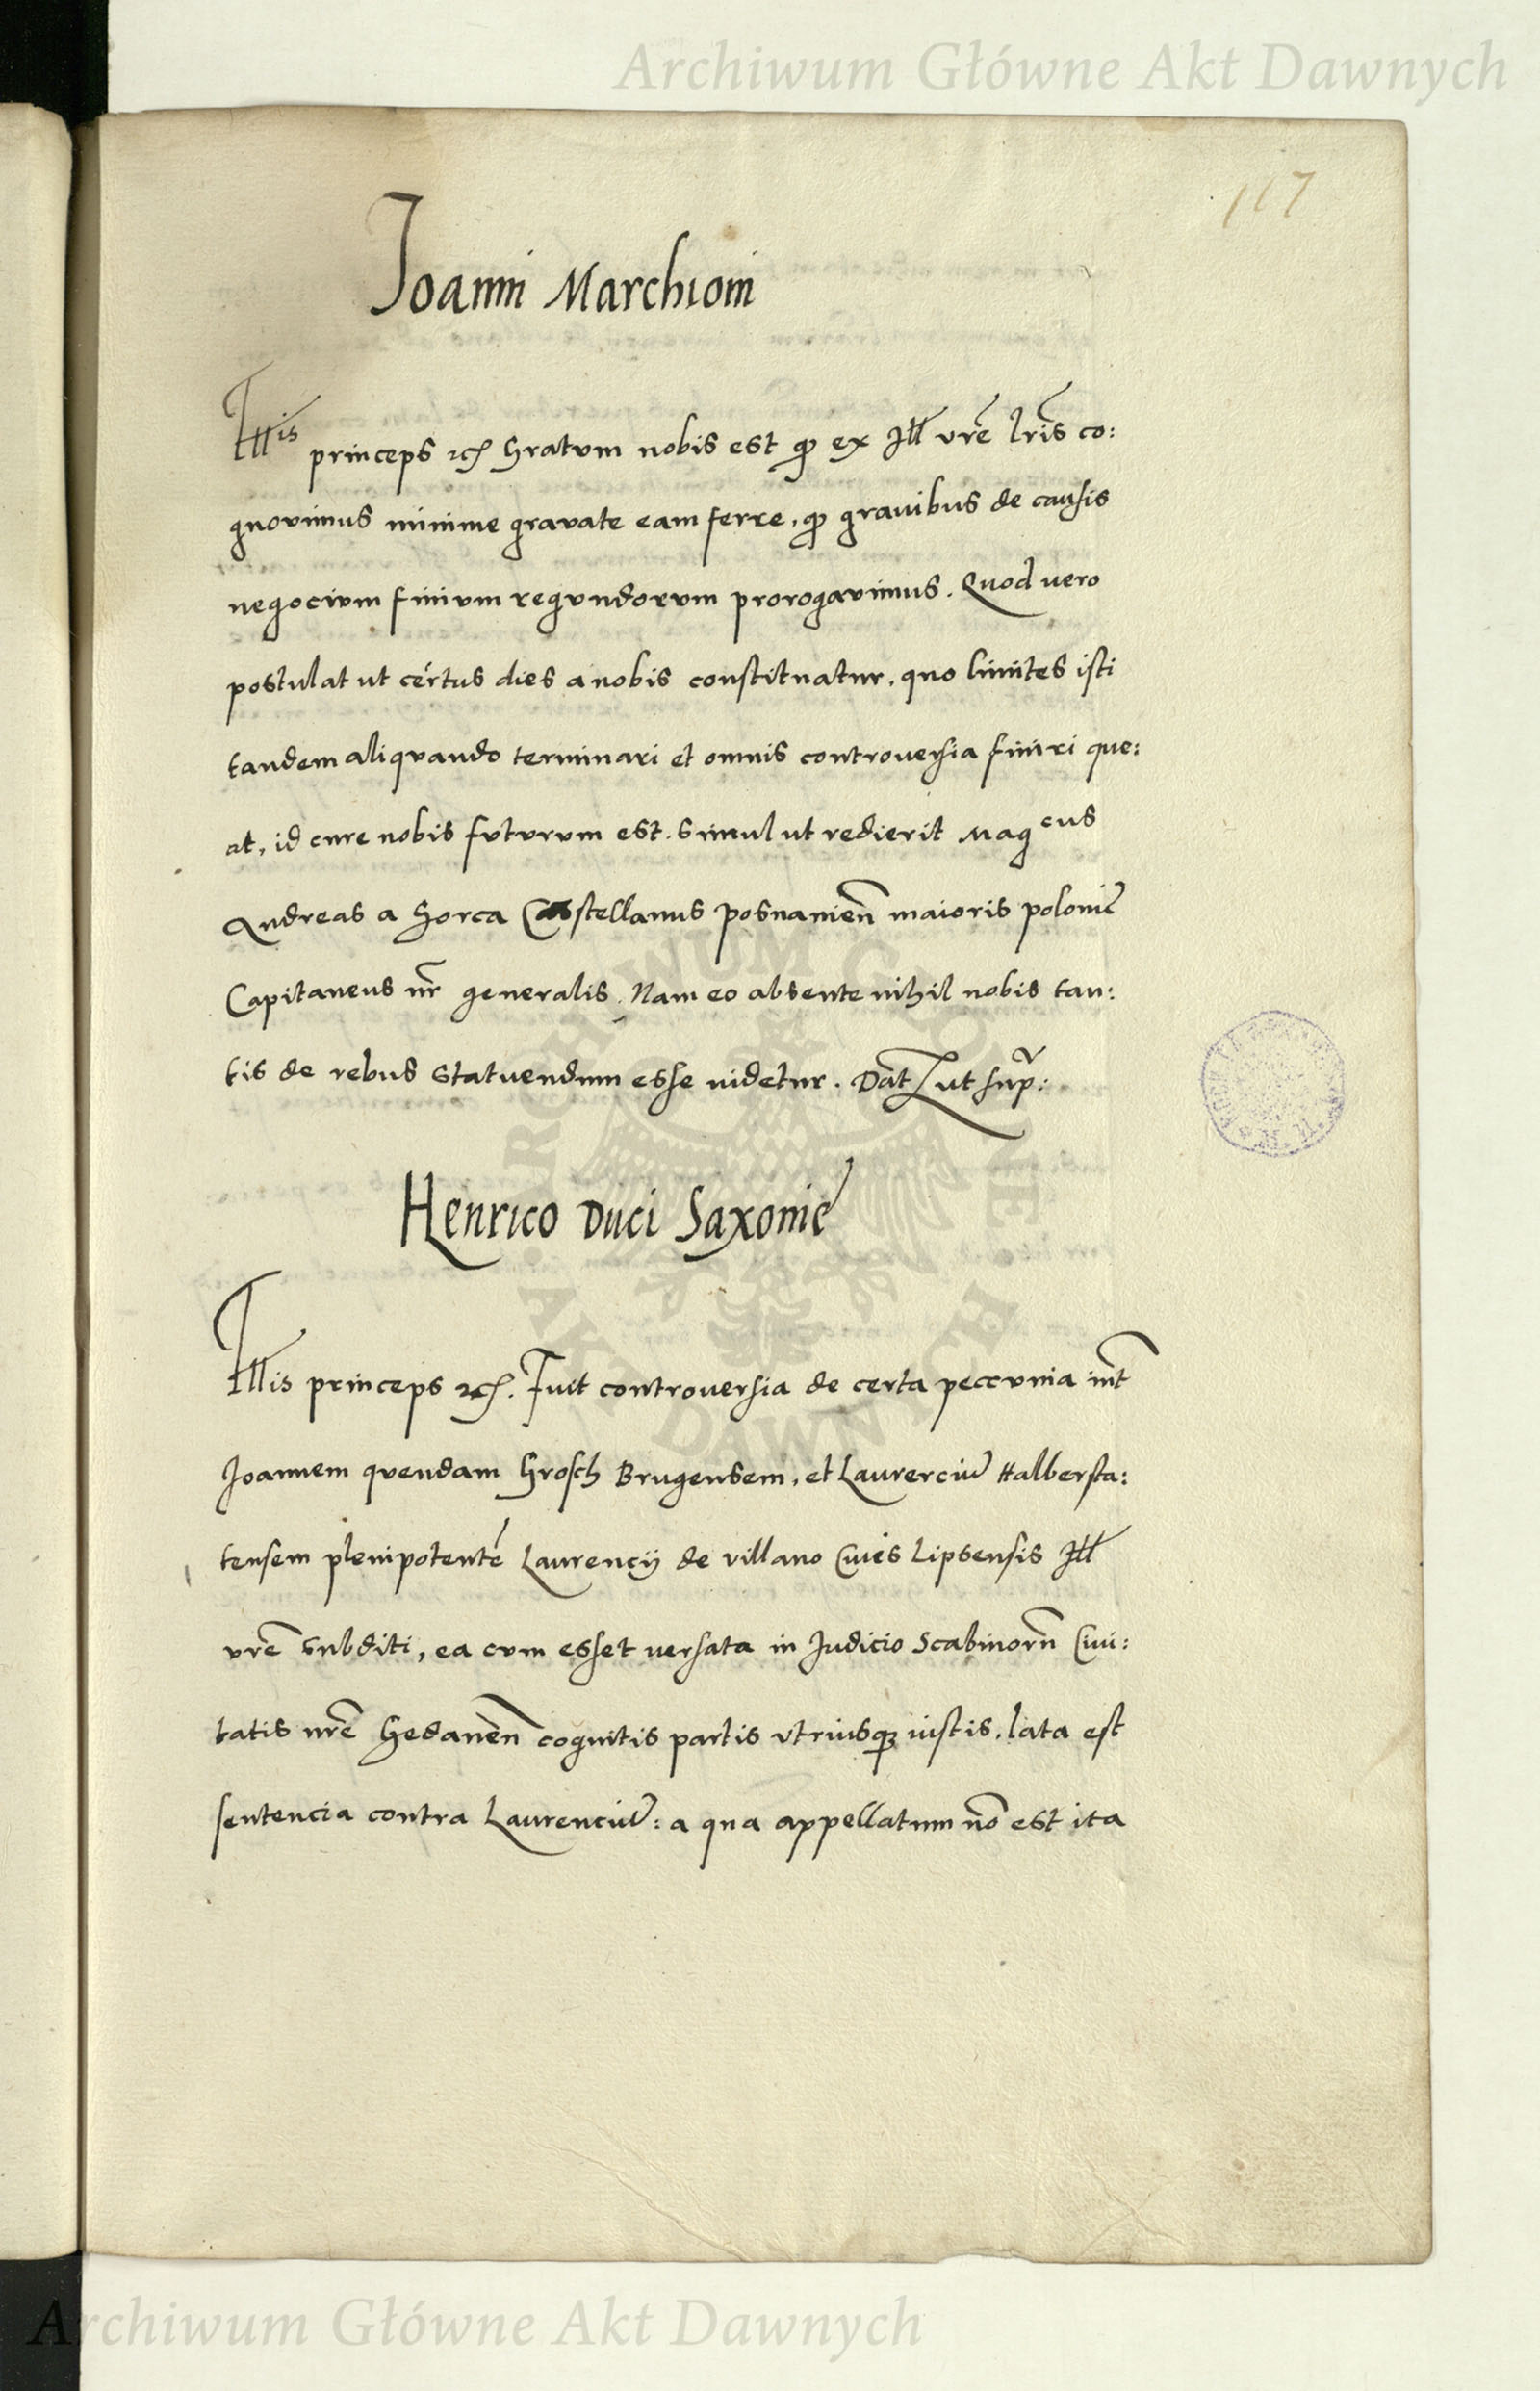 Archiwum Główne Akt Dawnych
117
Joanni Marchioni
Illis princeps etc Gratum nobis est qd ex Ill vrē lris co:
gnovimus minime gravate eam ferre, qd gravibus de causis
negocium finium regundorum prorogavimus. Quod vero
postulat ut certus dies a nobis constituatur, quo limites isti
tandem aliquando terminari et omnis controversia finiri que:
at, id cure nobis futurum est. simul ut redierit Magcus
Andreas a Gorca Castellanus Posnanien̄ maioris polonię
Capitaneus nr̄ generalis. Nam eo absente nihil nobis tan:
tis de rebus statuendum esse uidetur. Dat ut sup:
Henrico Duci Saxonię
Illis princeps etc. Fuit controuersia de certa peccunia int̄
Joannem quendam Grosch Brugensem, et Laurerciū Halbersta:
tensem plenipotentē Laurencij de villano Ciuis Lipsensis Ill
vrē subditi, ea cum esset uersata in Judicio Scabinorn̄ Ciui:
tatis nrē Gedanen̄ cognitis partis vtriusqȝ iustis, lata est
sentencia contra Laurenciū: a qua appellatum nō est ita
ARCHIWUM GŁÓWNE AKT DAWNYCH
Archiwum Główne Akt Dawnych